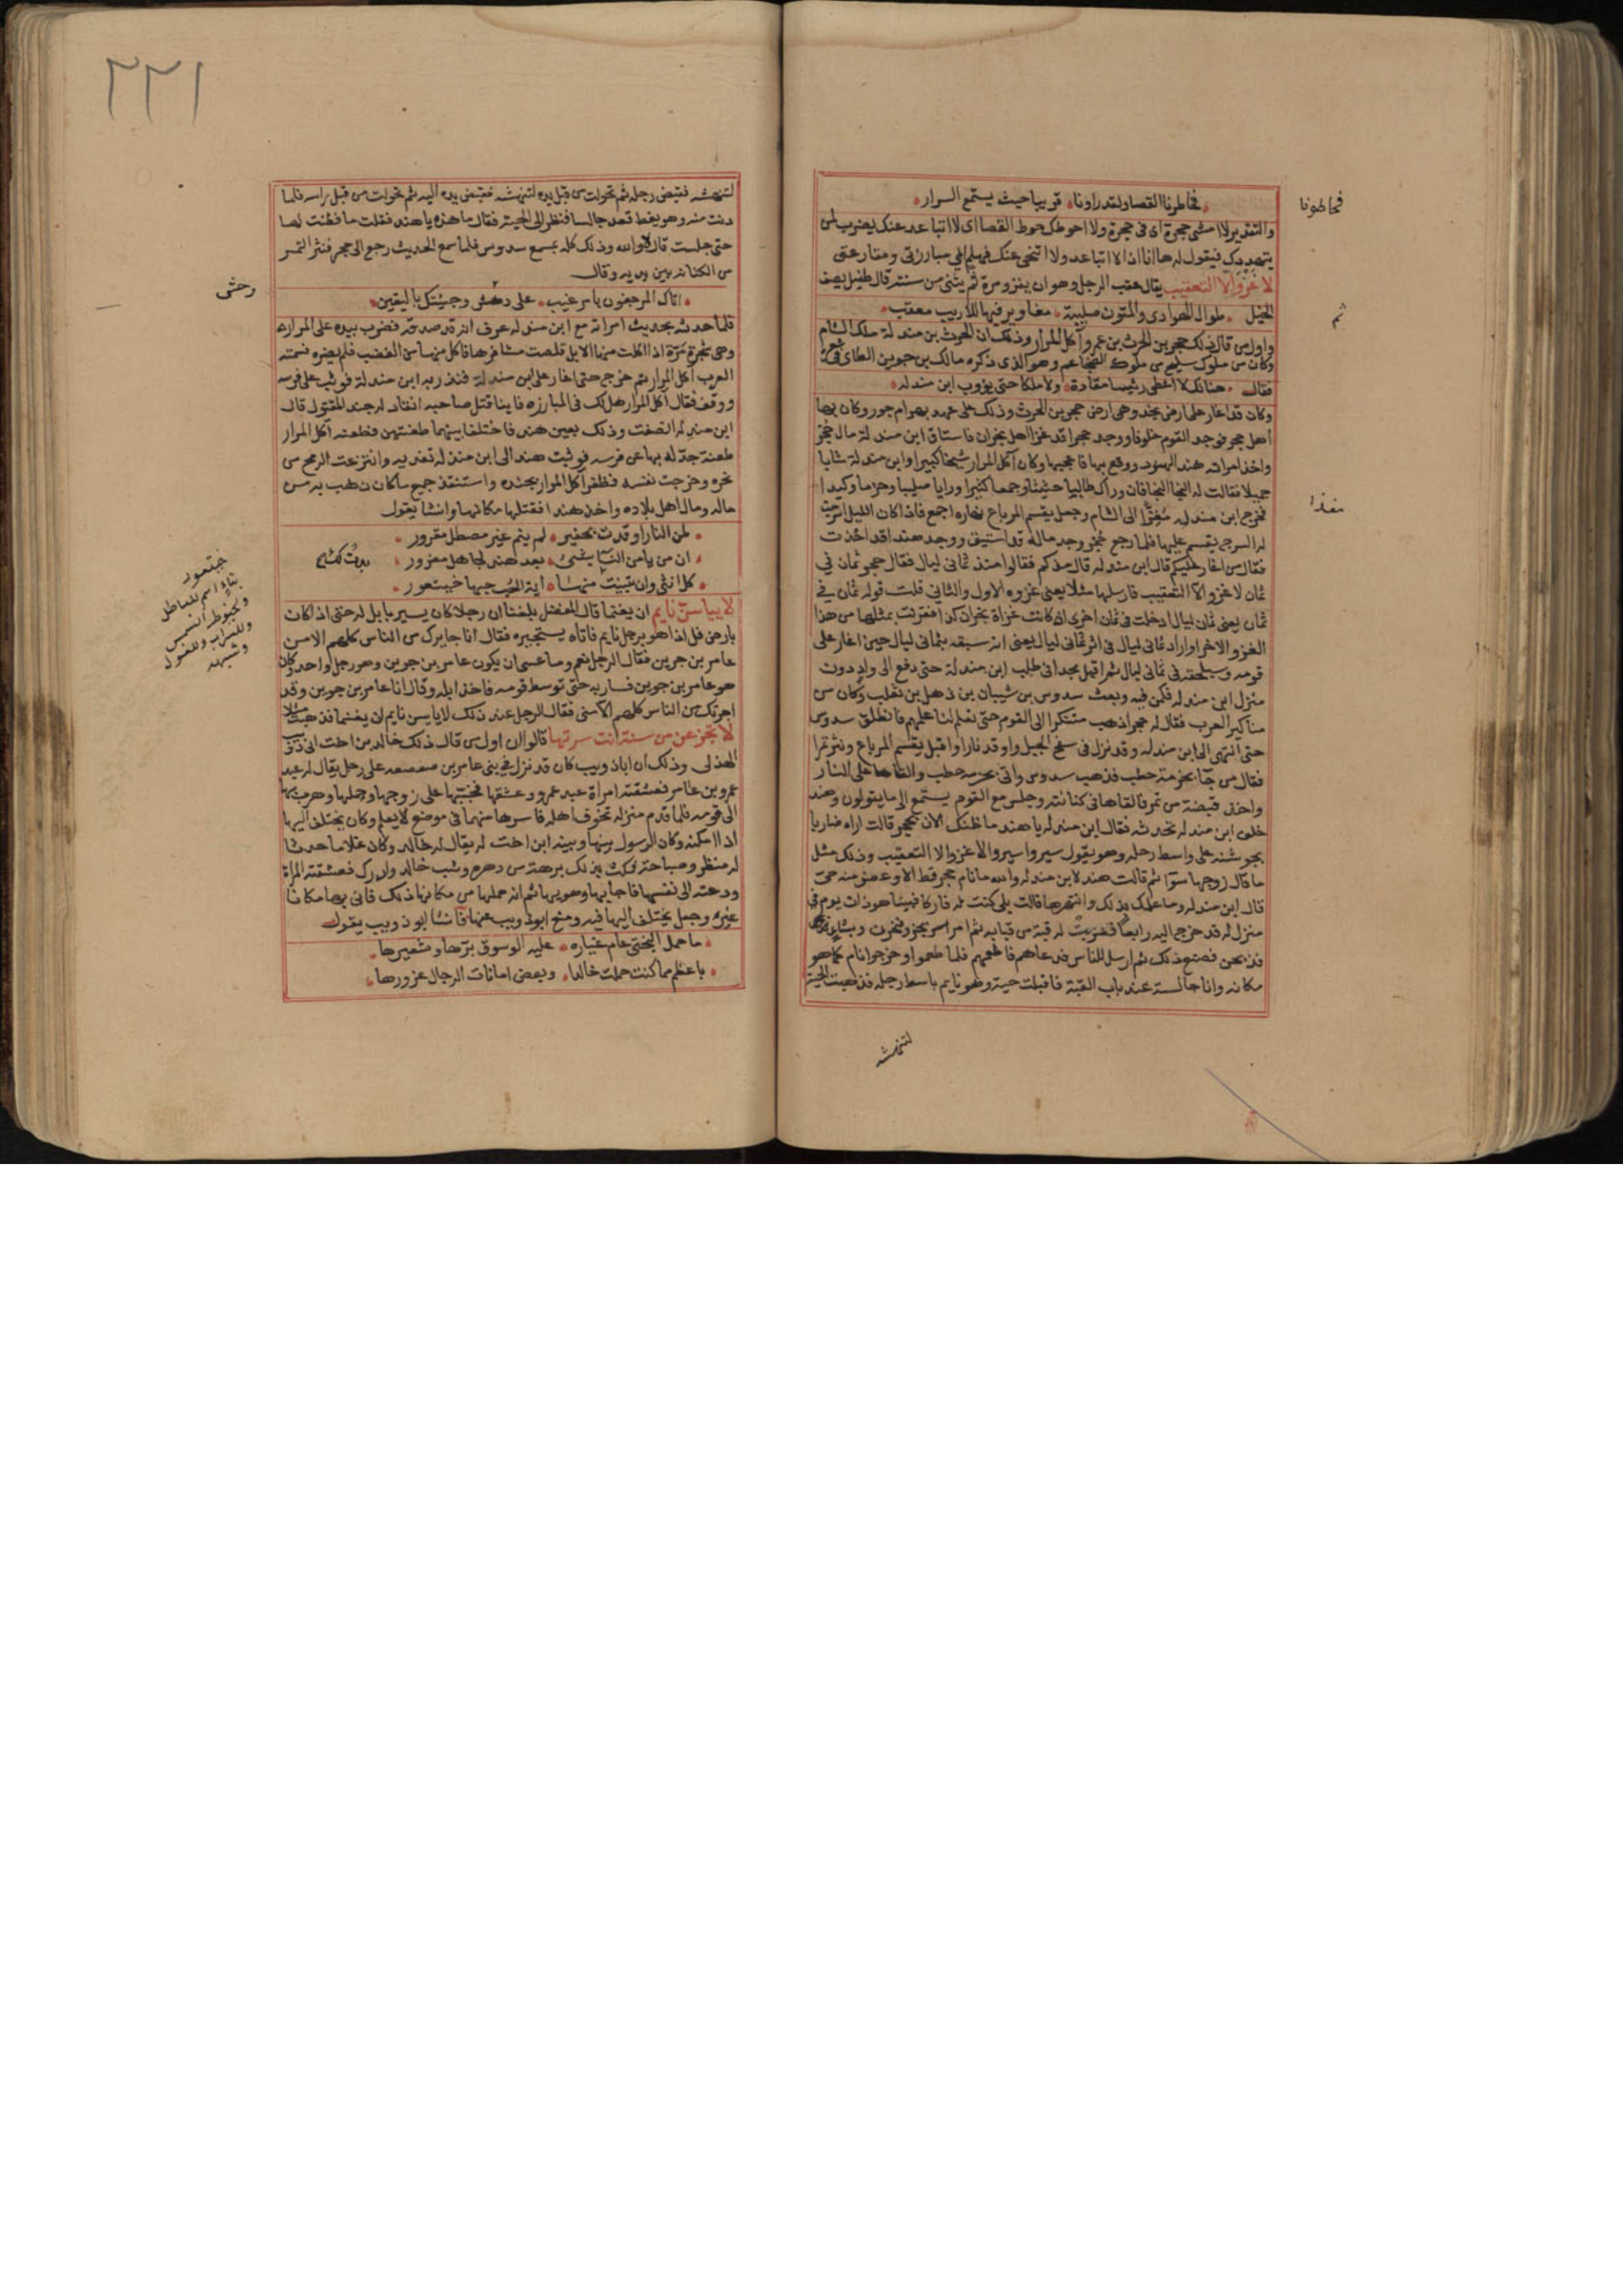 فحاطونا القصا ولقد راونا قريبا حيث يستمع السرار
والتقدير لا امشى حجرة اى فى حجرة ولا احوطك حوط القصا اى لا اتباعد عنك يضرب لمن
يتهددك فيقول له ها انا اذا لا اتباعد ولا اتنحى عنك فهلم الى مبارزتى ومقارعتى
لا غَزْوَ الا التعقيب يقال عقب الرجل وهو ان يغزو مرة ثم يثنى من سنته قال طفيل يصف
الخيل طوال الهوادى والمتون صليبة مغاوير فيها للاريب معقب
واول من قال ذلك حجر بن الحرث بن عمرو آكل المرار وذلك ان الحرث بن مندلة ملك الشام
وكان من ملوك سليح من ملوك الضجاعم وهو الذى ذكره مالك بن جوين الطاى فى شعره
فقال هنالك لا اعطى رئيسا مقادة ولا ملكا حتى يؤوب ابن مندله
وكان قد اغار على ارض نجد وهى ارض حجر بن الحرث وذلك على عهد بهرام جور وكان بها
اهل حجر فوجد القوم خلوفا ووجد حجرا قد غزا اهل نجران فاستاق ابن مندلة مال حجر
واخذ امراته هند الهنود ووقع بها فاعجبها وكان آكل المرار شيخا كبيرا وابن مندلة شابا
جميلا فقالت له النجا النجا فان وراك طالبا حثيثا وجمعا كثيرا ورايا صليبا وحزما وكيدا
فخرج ابن مندله مُغِذًّا الى الشام وجعل يقسم المرباع نهاره اجمع فاذا كان الليل اسرجت
له السرج يقسم عليها فلما رجع حجر وجد ماله قد استيق ووجد هندا قد اخذت
فقال من اغار عليكم قال ابن مندله قال مذ كم فقالوا منذ ثمانى ليال فقال حجر ثمان فى
ثمان لا غزو الا التعقيب فارسلها مثلا يعنى غزوه الاول والثانى قلت قوله ثمان فى
ثمان يعنى ثمان ليال ادخلت فى ثمان اخرى
الغزو الاخر او اراد ثمانى ليال فى اثر ثمانى ليال يعنى انه سبقه بثمانى ليال حين اغار على
قومه وسيلحقه فى ثمانى ليال ثم اقبل مجدا فى طلب ابن مندلة حتى دفع الى واد دون
منزل ابن مندله فكمن فيه وبعث سدوس بن شيبان بن ذهل بن ثعلب وكان من
مناكير العرب فقال له حجر اذهب متنكرا الى القوم حتى تعلم لنا علمهم فانطلق سدوس
حتى انتهى الى ابن مندله وقد نزل فى سفح الجبل واوقد نارا واقبل يقسم المرباع ونثر تمرا
فقال من جآ بحزمة حطب فذهب سدوس واتى بحزمه حطب والقاها على النار
واخذ قبضة من تمر فالقاها فى كنانته وجلس مع القوم يستمع الى ما يقولون وهند
خلف ابن مندله تحدثه فقال ابن مندله يا هند ما ظنك الان بحجر قالت اراه ضاربا
بجوشنه على واسط رحله وهو يقول سيروا سيروا لا غزو الا التعقيب وذلك مثل
ما قال زوجها سوآ ثم قالت هند لابن مندله والله ما نام حجر قط الا وعضو منه حى
قال ابن مندله وما علمك بذلك وانتهرها قالت بلى كنت له فاركا فبينا هو ذات يوم فى
منزل له قد خرج اليه رابعا فضربت له قبة من قبابه ثم امر
فذبحن فصنع ذلك ثم ارسل للناس فدعاهم فاطعمهم فلما طعموا وخرجوا نام كما هو
مكانه وانا جالسة عند باب القبة فاقبلت حية وهو نايم باسط رجله فذهبت الحية
لتنهشه
فحاطونا
ثم
مغذا
٢٢١
لتنهشه فقبض رجله ثم تحولت من قبل يده لتنهشه فقبض يده اليه ثم تحولت من قبل راسه فلما
دنت منه وهو يغط قعد جالسا فنظر الى الحية فقال ما هذه يا هند فقلت ما فطنت لها
حتى جلست قال لا والله وذلك كله بمسمع سدوس فلما سمع الحديث رجع الى حجر فنثر التمر
من الكنانة بين يديه وقال
اتاك المرجفون بامر غيب على دهش وجيتك باليقين
فلما حدثه بحديث امراته مع ابن مندله عرف انه قد صدقه فضرب بيده على المراره
وهى شجرة مرّة اذا اكلت منها الابل قلصت مشافرها فاكل منها من الغضب فلم يضره فسمته
العرب آكل المرار ثم خرج حتى اغار على ابن مندلة فنذر به ابن مندلة فوثب على فرسه
ووقف فقال آكل المرار هل لك فى المبارزه فاينا قتل صاحبه انقاد له جند المقتول قال
ابن مندله انصفت وذلك بعين هند فاختلفا بينهما طعنتين فطعنه آكل المرار
طعنة جدّله بها عن فرسه فوثبت هند الى ابن مندله تفديه وانتزعت الرمح من
نحره وخرجت نفسه فظفر آكل المرار بجنده واستنقذ جميع ما كان ذهب به من
ماله ومال اهل بلاده واخذ هندا فقتلها مكانها وانشا يقول
لمن النار اوقدت بحفير لم ينم غير مصطل مقرور
ان من يامن النسا بشىء بعد هند لجاهل مغرور
كل انثى وان تبينت منها اية الحُب حبها خيتعور
لا ييأسنّ نايم ان يغنما قال المفضل بلغنا ان رجلا كان يسير بابل له حتى اذا كان
بارض فل اذا هو برجل نايم فاتاه يستجيره فقال انا جايرك من الناس كلهم الا من
عامر بن جوين فقال الرجل نعم وما عسى ان يكون عامر بن جوين وهو رجل واحد وكان
هو عامر بن جوين فسار به حتى توسط قومه فاخذ ابله وقال انا عامر بن جوين وقد
اجرتك من الناس كلهم الا منى فقال الرجل عند ذلك لا ييأسن نايم ان يغنما فذهبت مثلا
لا تجزعن من سنة انت سرتها قالوا ان اول من قال ذلك خالد بن اخت ابى ذويب
الهذلى وذلك ان اباذويب كان قد نزل فى بنى عامر بن صعصعه على رجل يقال له عبد
عمرو بن عامر فعشقته امراة عبد عمرو وعشقها فخببها على زوجها وحملها وهرب بها
الى قومه فلما قدم منزله تخوف اهله فاسرها منهما فى موضع لا يعلم وكان يختلف اليها
اذا امكنه وكان الرسول بينها وبينه ابن اخت له يقال له خالد وكان غلاما حدثا
له منظر وصباحة فمكث بذلك برهة من دهره وشب خالد وادرك فعشقته المراة
ودعته الى نفسها فاجابها وهويها ثم انه حملها من مكانها ذلك فاتى بها مكانا
غيره وجعل يختلف اليها فيه ومنع ابوذويب عنها فانشا ابو ذويب يقول
ما حمل البختى عام غياره عليه الوسوق برّها وشعيرها
باعظم مما كنت حملت خالدا وبعض امانات الرجال غرورها